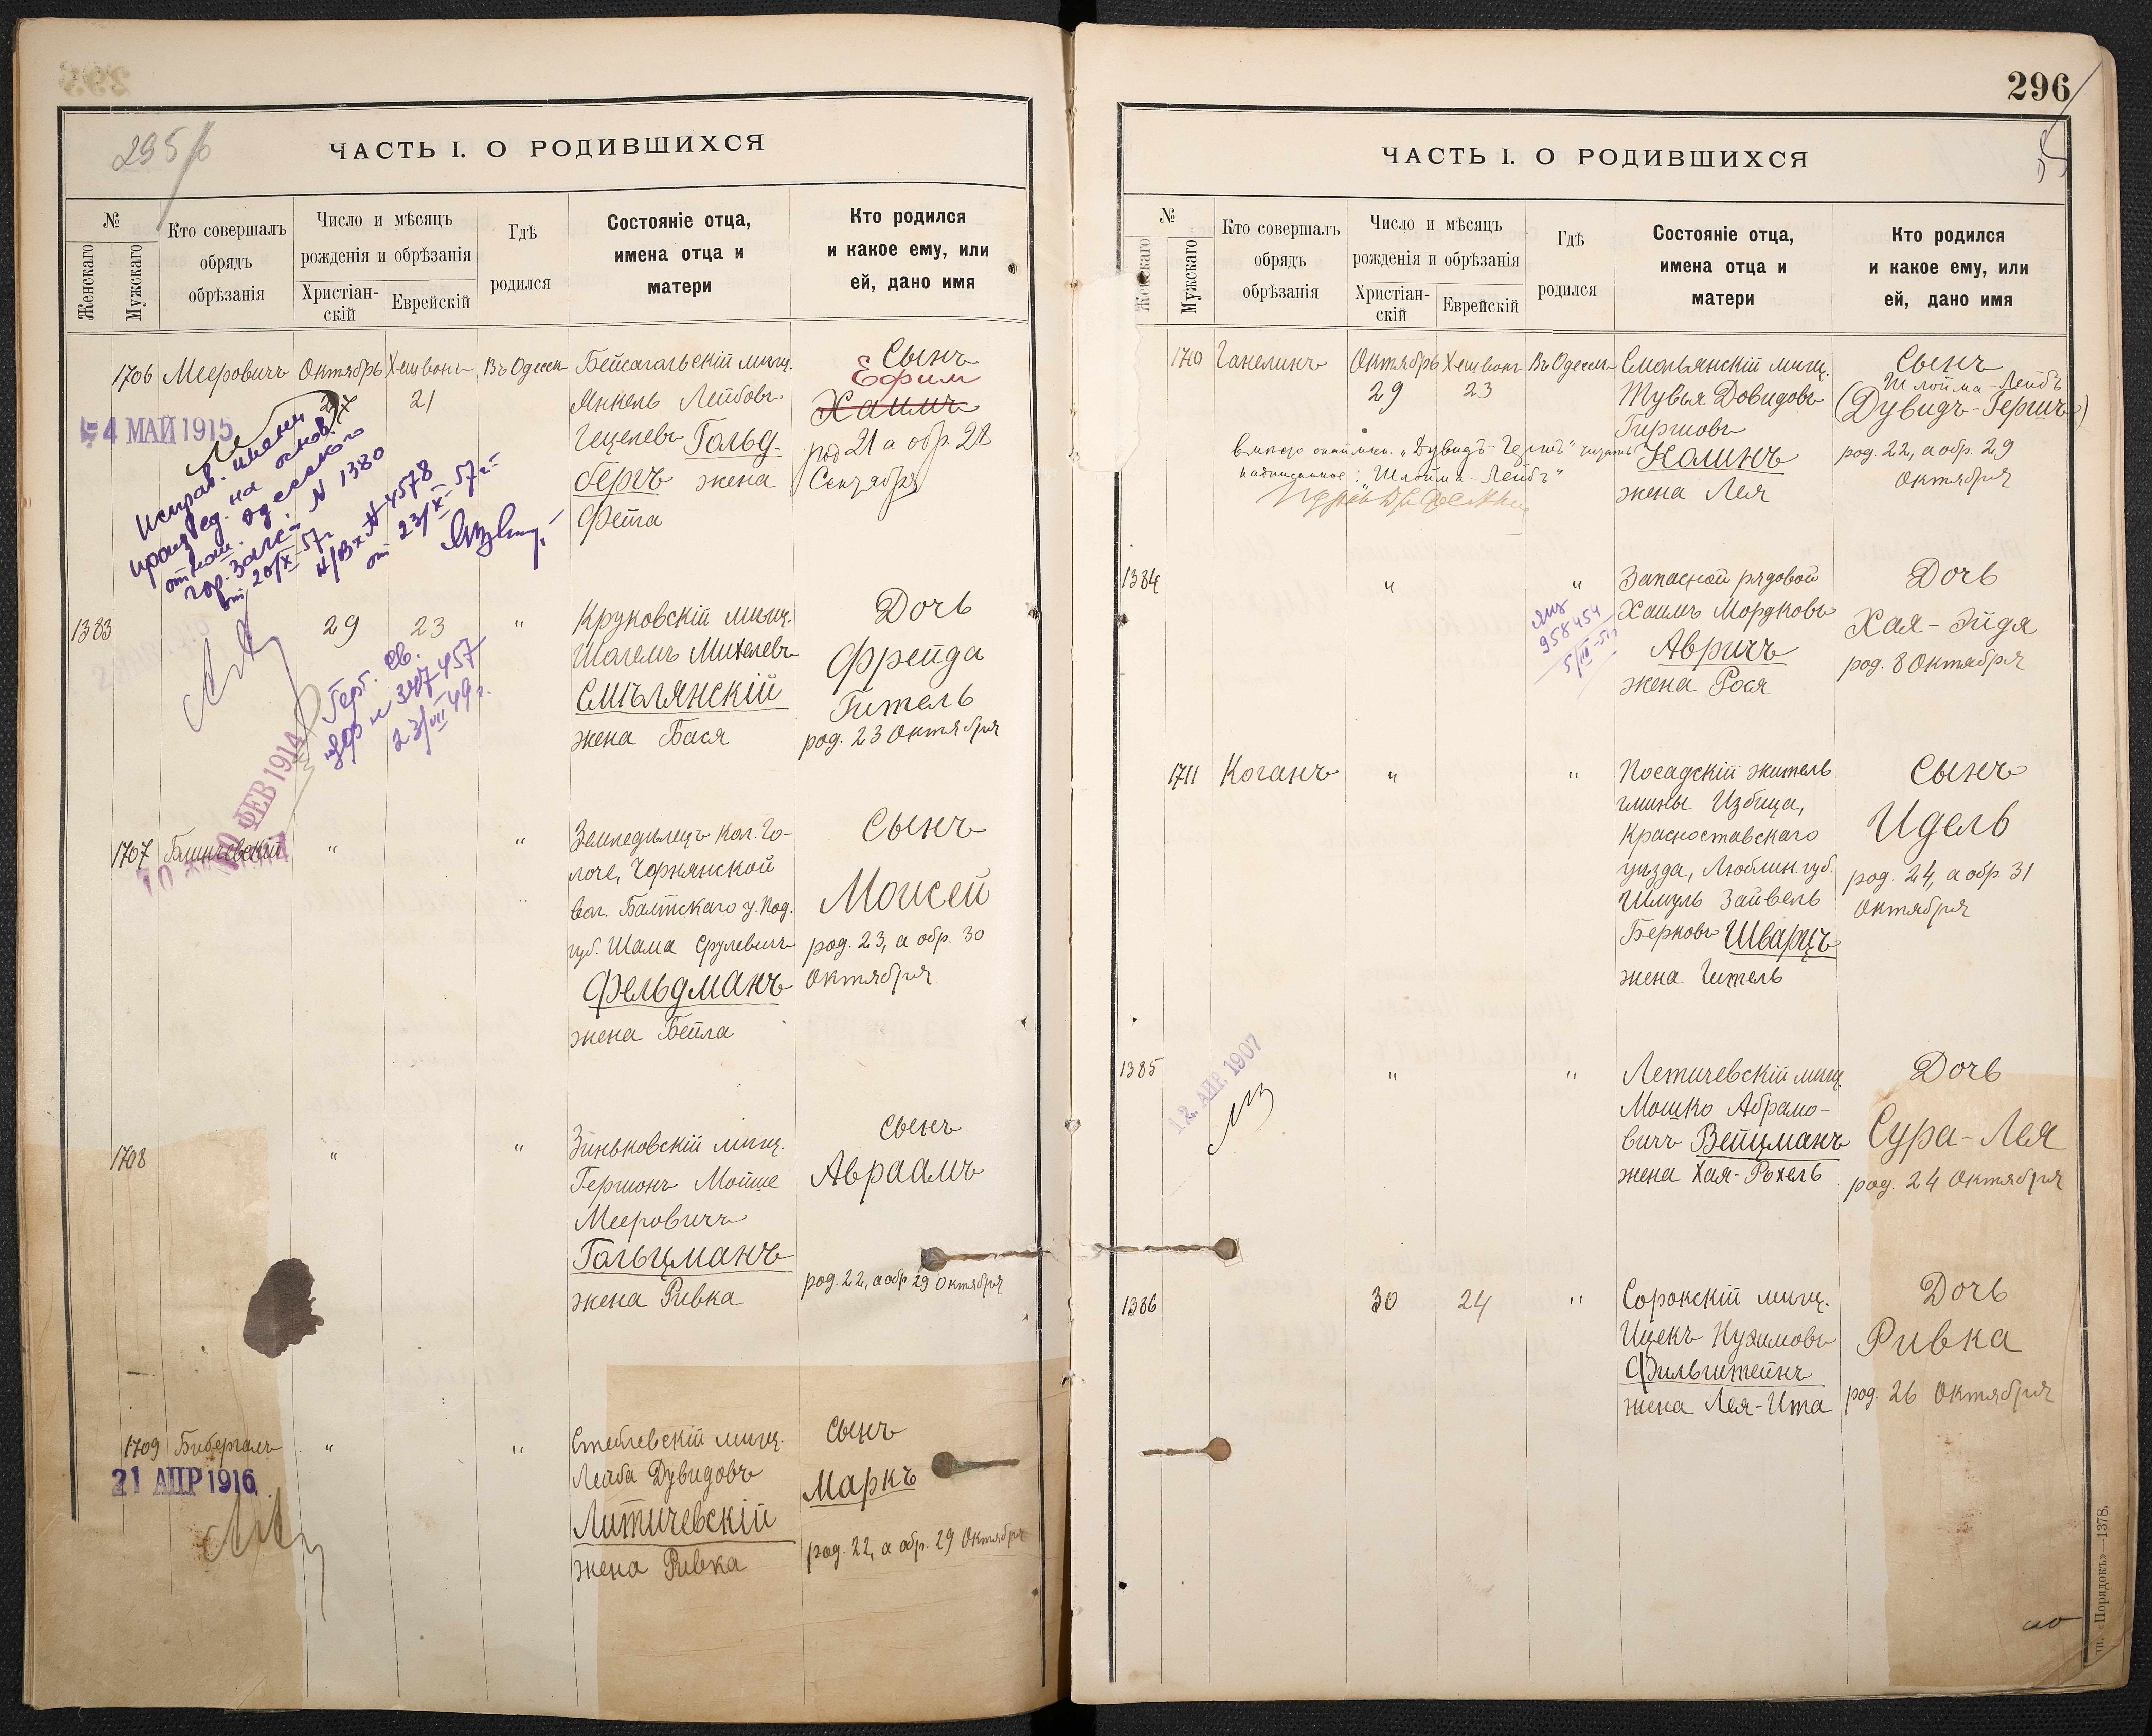 295 б
ЧАСТЬ I. О РОДИВШИХСЯ
№
Женскаго
Мужскаго
Кто совершалъ
обрядъ
обрѣзанія
Число и мѣсяцъ
рожденія и обрѣзанія
Христіан-
скій
Еврейскій
Гдѣ
родился
Состояніе отца,
имена отца и
матери
Кто родился
и какое ему, или
ей, дано имя
1706 Мееровичъ Октябрь Хешвонъ Въ Одессѣ
27 21
Бейсагальскій мѣщ.
Янкель Лейбовъ
Гецелевъ Гольд-
бергъ жена
Фейга
Сынъ
Ефим
Хаимъ
род 21 а обр. 28
Сентября
4 МАЙ 1915
Исправ. имени
произвед. на основ.
отнош. Одесского
гор. Загс N 1380
от 20/X-57г.
Н/Вх N 4578
от 23/X-57г.
1383 29 23 "
Круковскій мѣщ.
Шолемъ Михелевъ
Смѣлянскій
жена Бася
Дочь
Фрейда
Гитель
род. 23 Октября
Герб. Св.
N 347457
23/VII 49г.
10 ФЕВ 1914
1707 " "
Земледѣлецъ кол. Го-
лоче, Чорнянской
вол. Балтскаго у. Под.
губ. Шама Срулевичъ
Фельдманъ
жена Бейла
Сынъ
Моисей
род. 23, а обр. 30
Октября
1708 " "
Зиньковскій мѣщ.
Гершонъ Мойше
Мееровичъ
Гольцманъ
жена Ривка
Сынъ
Авраамъ
род. 22, а обр. 29 Октября
1709 Бибергалъ " "
21 АПР 1916
Стеблевскій мѣщ.
Лейба Дувидовъ
Литичевскій
жена Ривка
Сынъ
Маркъ
род. 22, а обр. 29 Октября
296
ЧАСТЬ I. О РОДИВШИХСЯ
№
Женскаго
Мужскаго
Кто совершалъ
обрядъ
обрѣзанія
Число и мѣсяцъ
рожденія и обрѣзанія
Христіан-
скій
Еврейскій
Гдѣ
родился
Состояніе отца,
имена отца и
матери
Кто родился
и какое ему, или
ей, дано имя
1710 Ганелинъ Октябрь Хешвонъ Въ Одессѣ
29 23
Смольянскій мѣщ.
Тувья Довидовъ
Гиршовъ
Нолинъ
жена Лея
Сынъ
Шлойма-Лейбъ
(Дувидъ-Гершъ)
род. 22, а обр. 29
Октября
вмѣсто „Дувидъ-Гершъ" читать
надписанное: „Шлойма-Лейбъ"
1384 " "
958454
5/III-51г
Запасной рядовой
Хаимъ Мордковъ
Авричъ
жена Рося
Дочь
Хая-Эйдя
род. 8 Октября
1711 Коганъ " "
Посадскій житель
гмины Избица,
Красноставскаго
уѣзда, Люблин. губ.
Шмуль Зайвель
Берковъ Шварцъ
жена Гитель
Сынъ
Идель
род. 24, а обр. 31
Октября
1385 " "
12 АПР. 1907
Летичевскій мѣщ.
Мошко Абрамо-
вичъ Вейцманъ
жена Хая-Рохель
Дочь
Сура-Лея
род. 24 Октября
1386 30 24 "
Сорокскій мѣщ.
Ицекъ Нухимовъ
Фильштейнъ
жена Лея-Ита
Дочь
Ривка
род. 26 Октября
«Порядокъ»—1378.